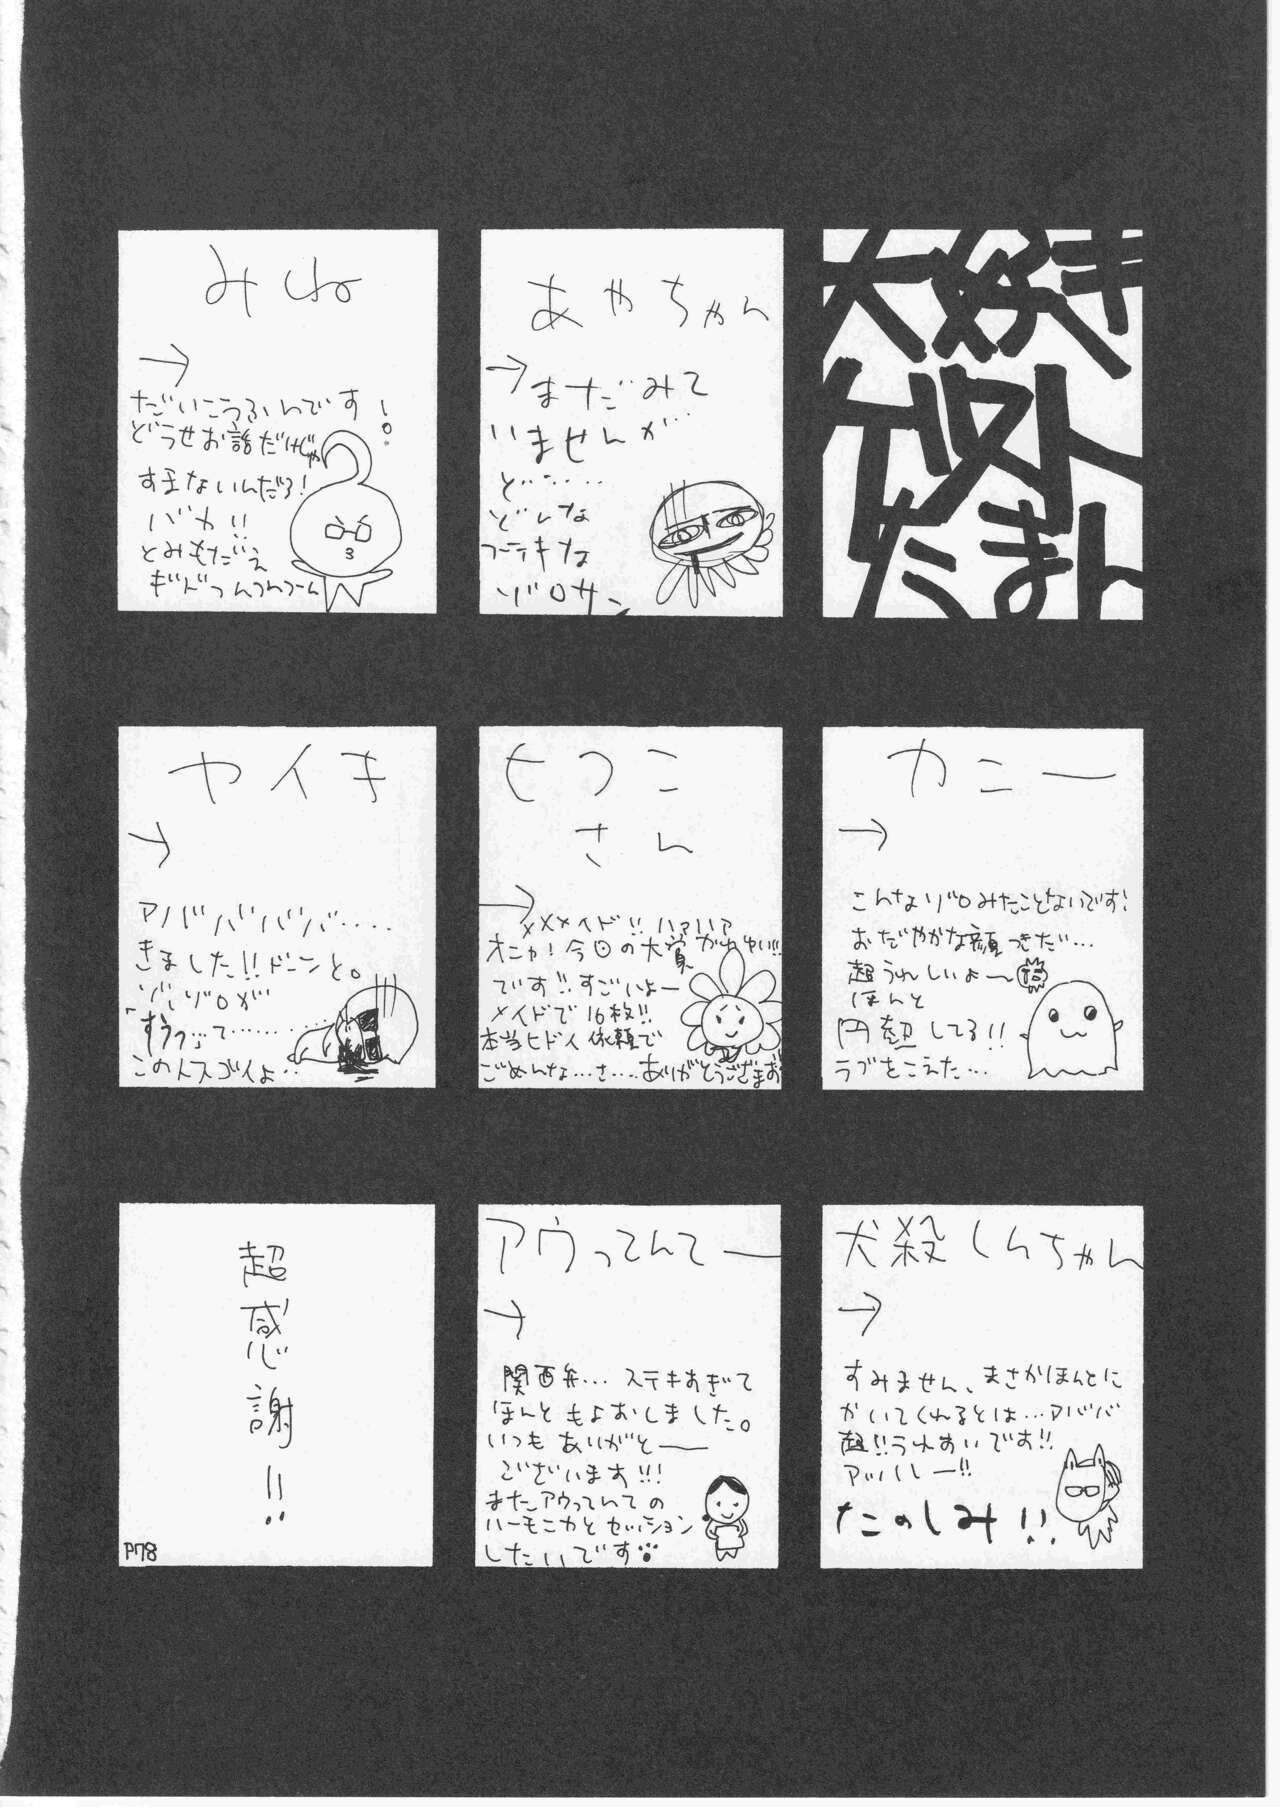 大好き
ゲスト
たまへ
あやちゃん
→
まだみて
いませんが…
ど……
どんな
ステキな
ゾロサン
みね
→
だいこうふんです!
どうせお話だけじゃ
すまないんだろ!
バカ!!
とみもだえ
カニー
→
こんなゾロみたことないです!
おだやかな顔つきだ…
超うれしいよ〜
ほんと
円熟してる!!
ラブをこえた…
ヒフこ
さん
→
メメメイド!! ハァハァ
です!!すごいよー
メイドで16枚!!
本当ヒドイ依頼で
ごめんな…さ…ありがとうござます
ヤイキ
→
アババババ….
きました!!ドーンと。
ゾ…ゾロが
このヒトスゴイよ…
犬殺しんちゃん
→
すみません、まさかほんとに
かいてくれるとは…アババ
超!!うれすいです!!
アッハハー!!
たのしみ!!
アウってんてー
→
関西弁… ステキすぎて
ほんともよおしました。
いつもありがと――
ございます!!!
またアウってんての
ハーモニカとセッション
したいです
超感謝!!
P78